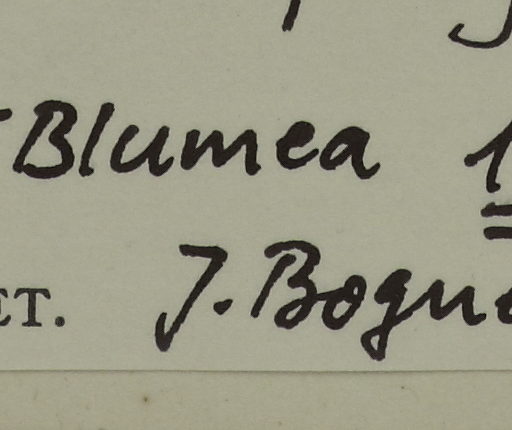 Blumea 1
ET. J. Bogne